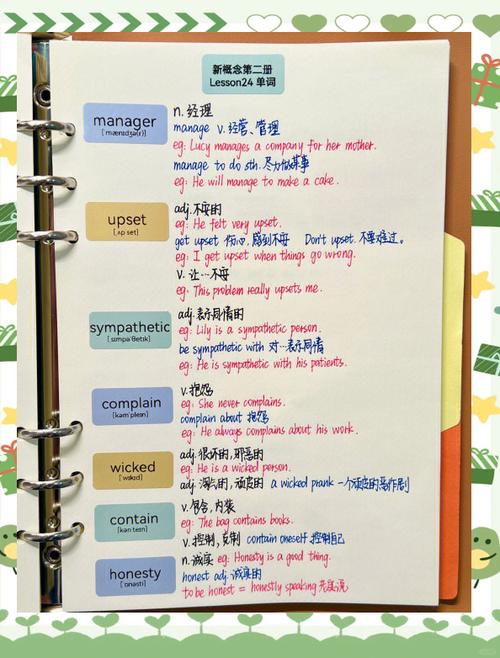 新概念第二册
Lesson24 单词
manager
n. 经理
manage v. 经营、管理
eg: Lucy manages a company for her mother.
manage to do sth. 尽力做某事
eg: He will manage to make a cake.
upset
[ʌpˈset]
adj. 不安的
eg: He felt very upset.
get upset 伤心, 感到不安 Don't upset. 不要难过。
eg: I get upset when things go wrong.
v. 让…不安
eg: This problem really upsets me.
sympathetic
adj. 表示同情的
eg: Lily is a sympathetic person.
be sympathetic with 对…表示同情
eg: He is sympathetic with his patients.
complain
v. 抱怨
eg: She never complains.
complain about 抱怨
eg: He always complains about his work.
wicked
adj. 很坏的, 邪恶的
eg: He is a wicked person.
adj. 淘气的, 顽皮的 a wicked prank 一个顽皮的恶作剧
contain
v. 包含, 内装
eg: The bag contains books.
v. 控制, 克制 contain oneself 控制自己
honesty
n. 诚实 eg: Honesty is a good thing.
honest adj. 诚实的
to be honest = honestly speaking 老实说